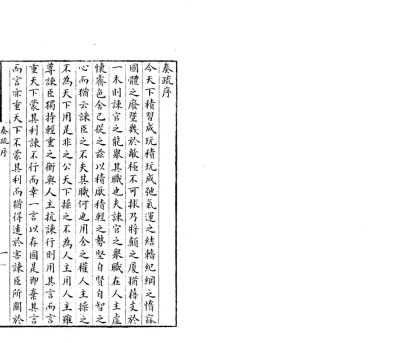 奏疏序
今天下積習成玩積玩成弛氣運之結轖紀綱之惰窳
國體之廢墜幾於敝極不可捄乃將顛之廈猶藉支於
一木則諫官之能舉其職也夫諫官之舉職在人主虛
懷霽色舍己從之茲以積厭積輕之勢堅自賢自智之
心而猶云諫臣之不失其職何也用舍之權人主操之
不為天下用是非之公天下操之不為人主用人主雖
尊諫臣獨持輕重之衡與人主抗諫行則用其言而言
重天下蒙其利諫不行而幸一言以存國是即棄其言
而言亦重天下不蒙其利而猶得遠於害諫臣所關於
奏疏序
一